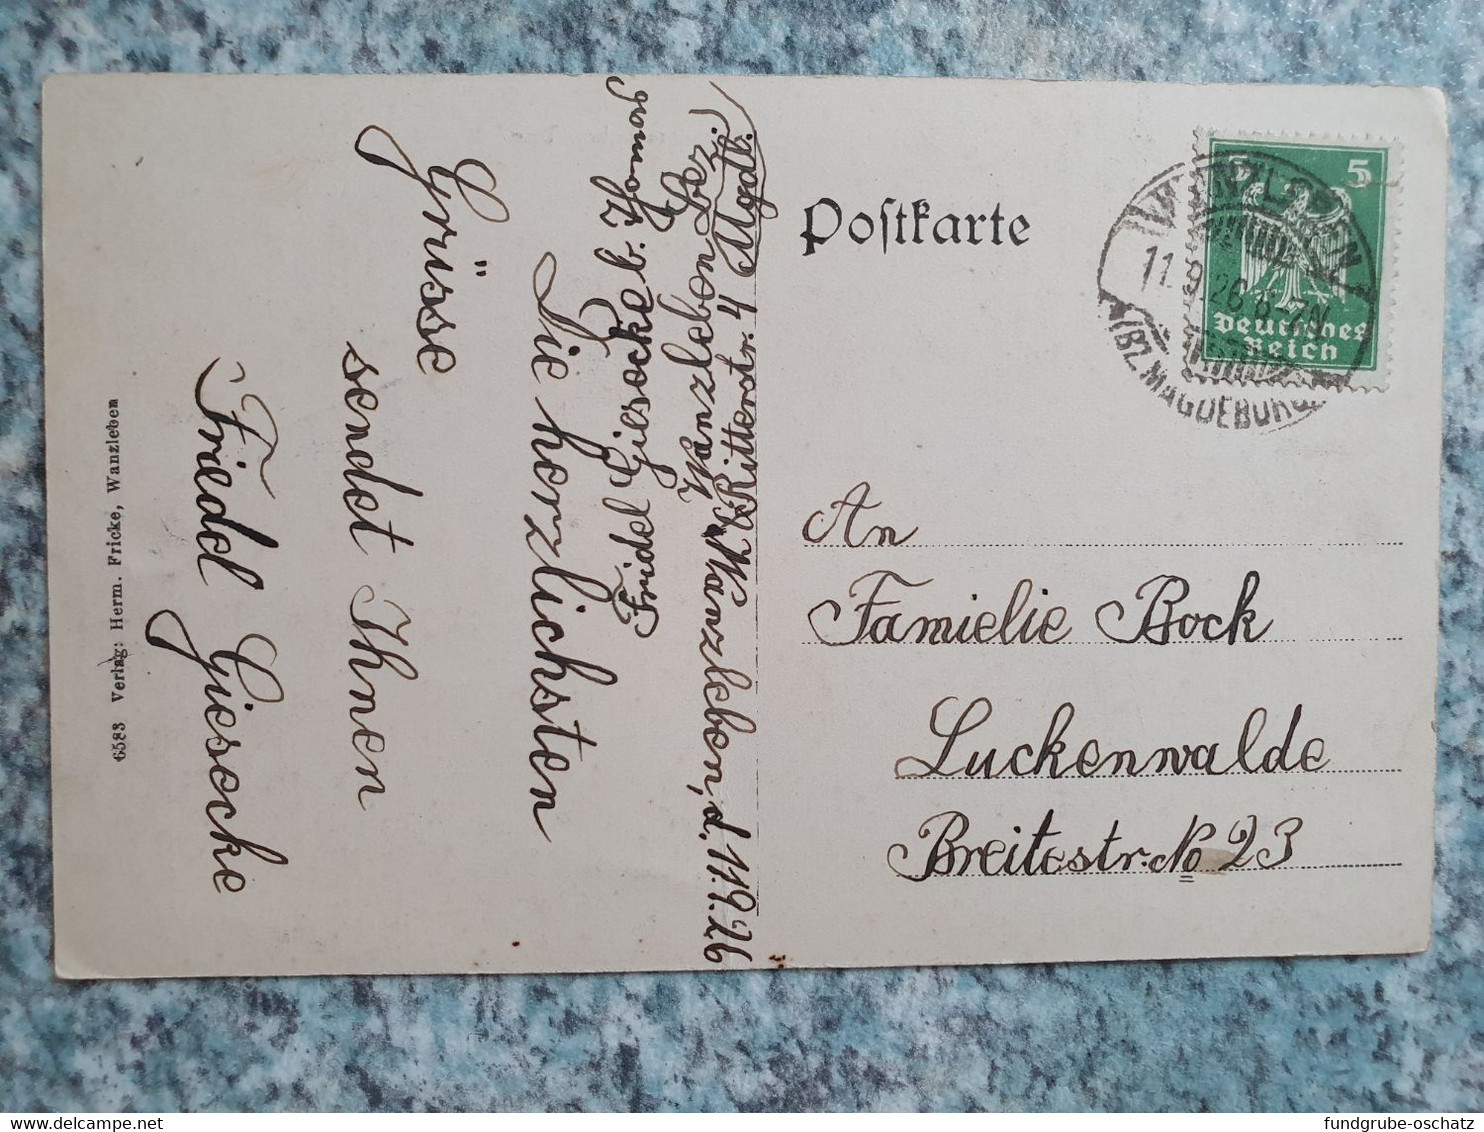 Postkarte
5 5
Deutsches
Reich
WANZLEBEN
11.9.26.6-7N
(BZ. MAGDEBURG)
An
Familie Bock
Luckenwalde
Breitestr. No 23
Wanzleben, d. 11.9.26
Die herzlichsten
Grüsse
sendet Ihnen
Friedel Giesecke
Friedel Giesecke b.
Wanzleben Bez.
Ritterstr. 4 Mgdb.
6583 Verlag: Herm. Fricke, Wanzleben
fundgrube-oschatz
delcampe.net